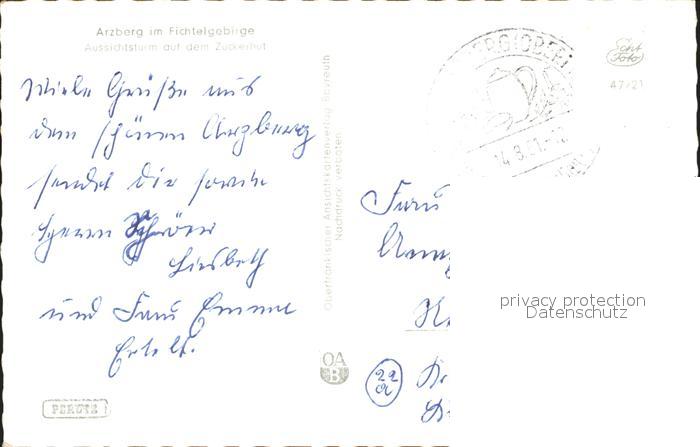 Arzberg im Fichtelgebirge
Aussichtsturm auf dem Zuckerhut
Viele Grüße aus
dem schönen Arzberg
sendet Dir sowie
Herrn
Liesbeth
und Frau Emma
Oberfränkischer Ansichtskartenverlag Bayreuth
Nachdruck verboten
OA
B
PERUTZ
Echt
Foto
47/21
ERG(OBERF
14.8.61.-12
Frau
22a
privacy protection
Datenschutz